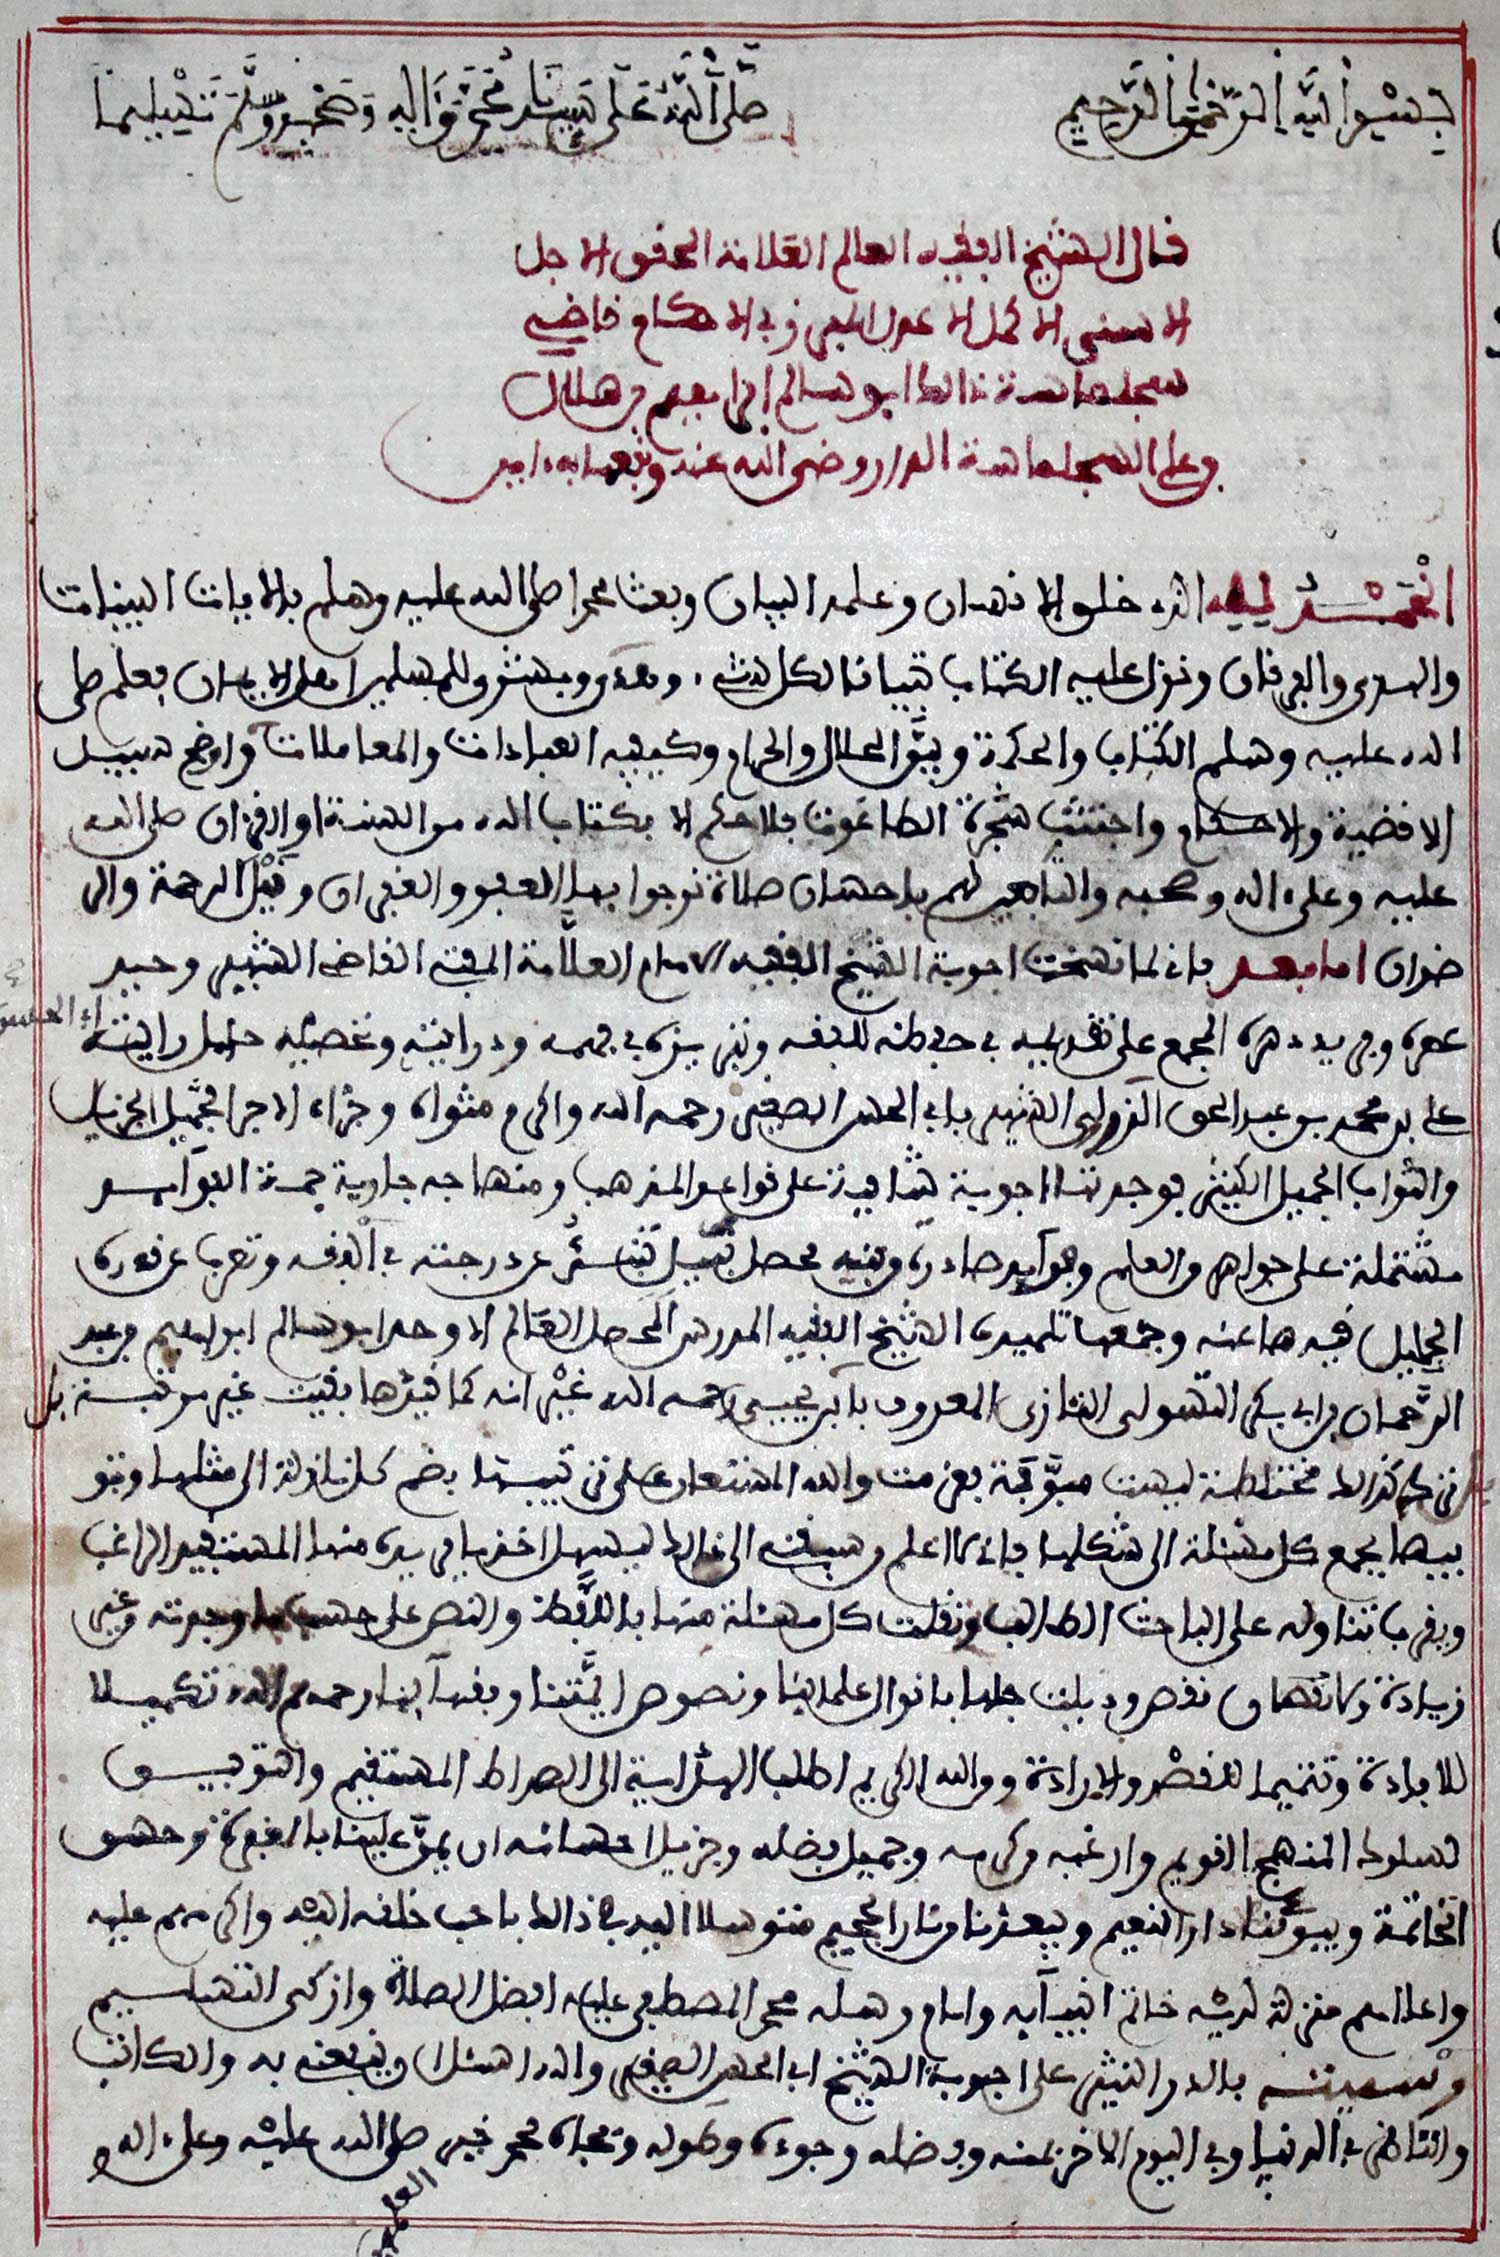 بسم الله الرحمن الرحيم صلى الله على سيدنا محمد وآله وصحبه وسلم تسليما
قال الشيخ الفقيه العالم العلامة المحقق الاجل
الاسنى الاكمل الاعدل في الاحكام قاضي
سجلماسة ذالك ابو سالم ابراهيم بن هلال
وعلى السجلماسة الدار رضي الله عنه ونفعنا به ءامين
الحمد لله الذي خلق الانسان وعلمه البيان وبعث محمدا صلى الله عليه وسلم بالايات البينات
والهدى والفرقان ونزل عليه الكتاب تبيانا لكل شيء وهدى وبشرى للمسلمين اهل الايمان فعلم صلى
الله عليه وسلم الكتاب والحكمة وبين الحلال والحرام وكيفية العبادات والمعاملات واوضح سبيل
الاقضية والاحكام واجتنب شجرة الطاغوت فلا حكم الا بكتاب الله من السنة او القرءان صلى الله
عليه وعلى اله وصحبه والتابعين لهم باحسان صلاة نرجوا بها العفو والغفران ونيل الرحمة والر
ضوان اما بعد فاني لما نسخت اجوبة الشيخ الفقيه الامام العلامة المفتي القاضي الشهير وحيد
عصره وفريد دهره المجمع على تقديمه في حفظه للفقه وتبريزه في فهمه ودرايته وتحصيله حامل رايته
ابي الحسن
علي بن محمد بن عبد الحق الزرويلي الشهير بابي الحسن الصغير رحمه الله واكرم مثواه وجزاه الاجر الجميل الجزيل
والثواب الجميل الكثير فوجدتها اجوبة شافية على قواعد المذهب ومنهاجه جارية جمة الفوائد
مشتملة على جواهر العلم وفوايد صادرة وفقيه محصل نبيل تبنئ عن درجته في الفقه وتعرب عن قدره
الجليل قيدها عنه وجمعها تلميذه الشيخ الفقيه المدرس المحصل العالم الاوحد ابو سالم ابراهيم بن عبد
الرحمان بن ابي بكر التسولي التازي المعروف بابن ابي يحيى رحمه الله غير انه كما قيدها بقيت غير مرتبة بل
كذالك مختلطة ليست مبوبة فعزمت والله المستعان على ترتيبها بضم كل نازلة الى مثلها وتبو
يبها بجمع كل مسئلة الى شكلها فاني لا اعلم من سبقني الى ذالك ليسهل اخذ ما يريده منها المستفيد الراغب
ويقرب تناوله على الباحث الطالب ونقلت كل مسئلة منها باللفظ والنص على حسب ما وجدته من غير
زيادة ولا نقصان نقص وذيلت جلها باقوال علمائنا ونصوص ائمتنا وفقهائنا رحمهم الله تكميلا
للافادة وتتميما للقصد والارادة ومن الله الكريم اطلب الهداية الى الصراط المستقيم والتوفيق
لسلوك المنهج القويم وارغبه من كرمه وجميل فضله وجزيل احسانه ان يمن علينا بالمغفرة وحسن
الخاتمة ويبوئنا دار النعيم ويبعدنا من نار الجحيم متوسلا اليه في ذالك باحب خلقه اليه واكرمهم عليه
واعلاهم منزلة لديه خاتم انبيائه وامام رسله محمد المصطفى عليه افضل الصلاة وازكى التسليم
وسميته بالدر النثير على اجوبة الشيخ ابي الحسن الصغير والله اسئل ان ينفعني به والكاتب
والناظر في الدنيا وفي اليوم الاخر بمنه وفضله وجوده وطوله وبجاه محمد خير صلى الله عليه وعلى اله و